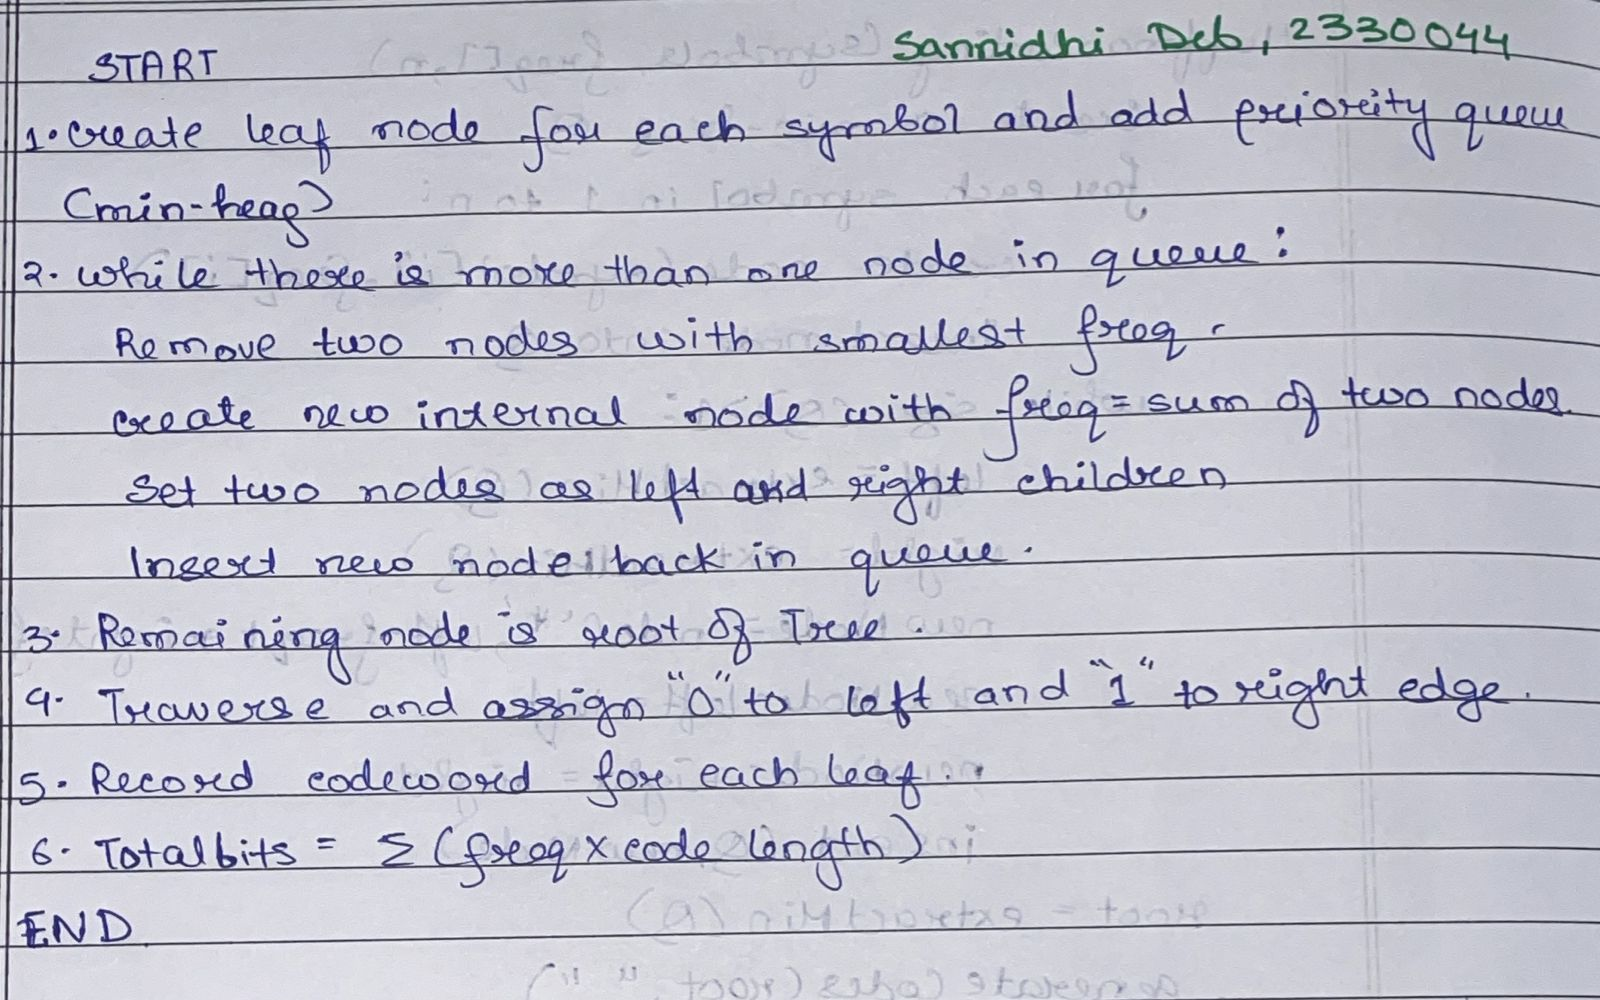 Sannidhi Deb, 2330044
START
1. Create leaf node for each symbol and add priority queue
(min-heap)
2. While there is more than one node in queue:
Remove two nodes with smallest freq.
create new internal node with freq = sum of two nodes.
Set two nodes as left and right children
Insert new node back in queue.
3. Remaining node is root of Tree.
4. Traverse and assign "0" to left and "1" to right edge.
5. Record codeword for each leaf.
6. Total bits = Σ (freq × code length)
END